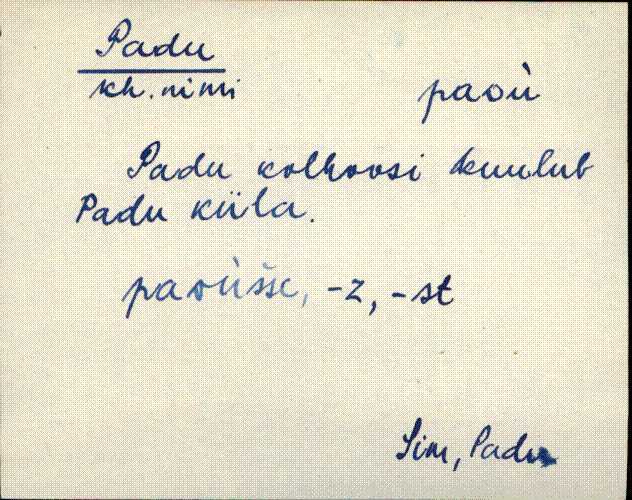 Padu
kh. nimi paoù
Padu kolhoosi kuulub
Padu küla.
paoùšše, -z, -st
Sim, Padu